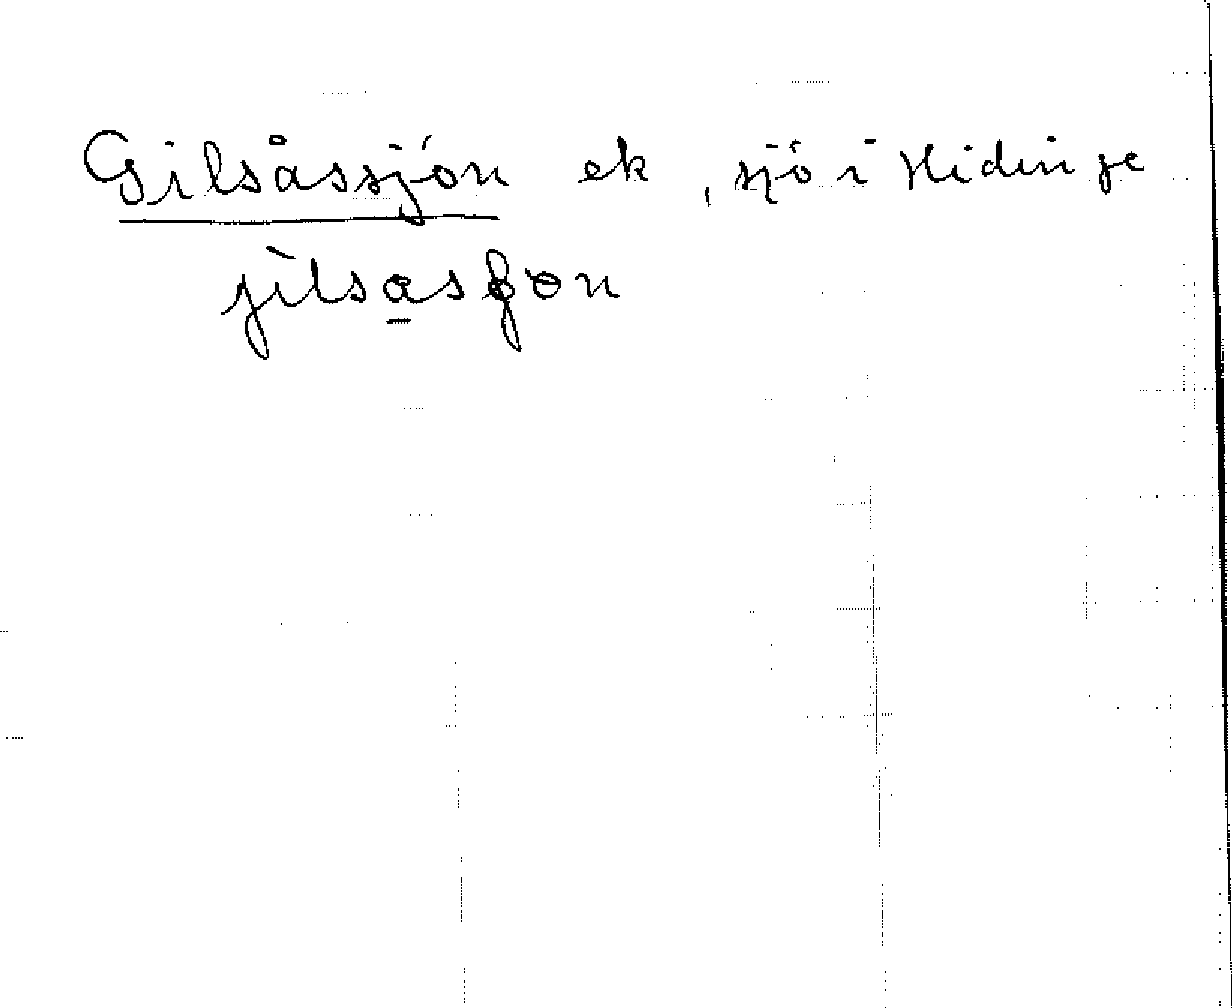 Gilsåssjön ek, sjö i Hidinge
jìlsa̱sʃɵn